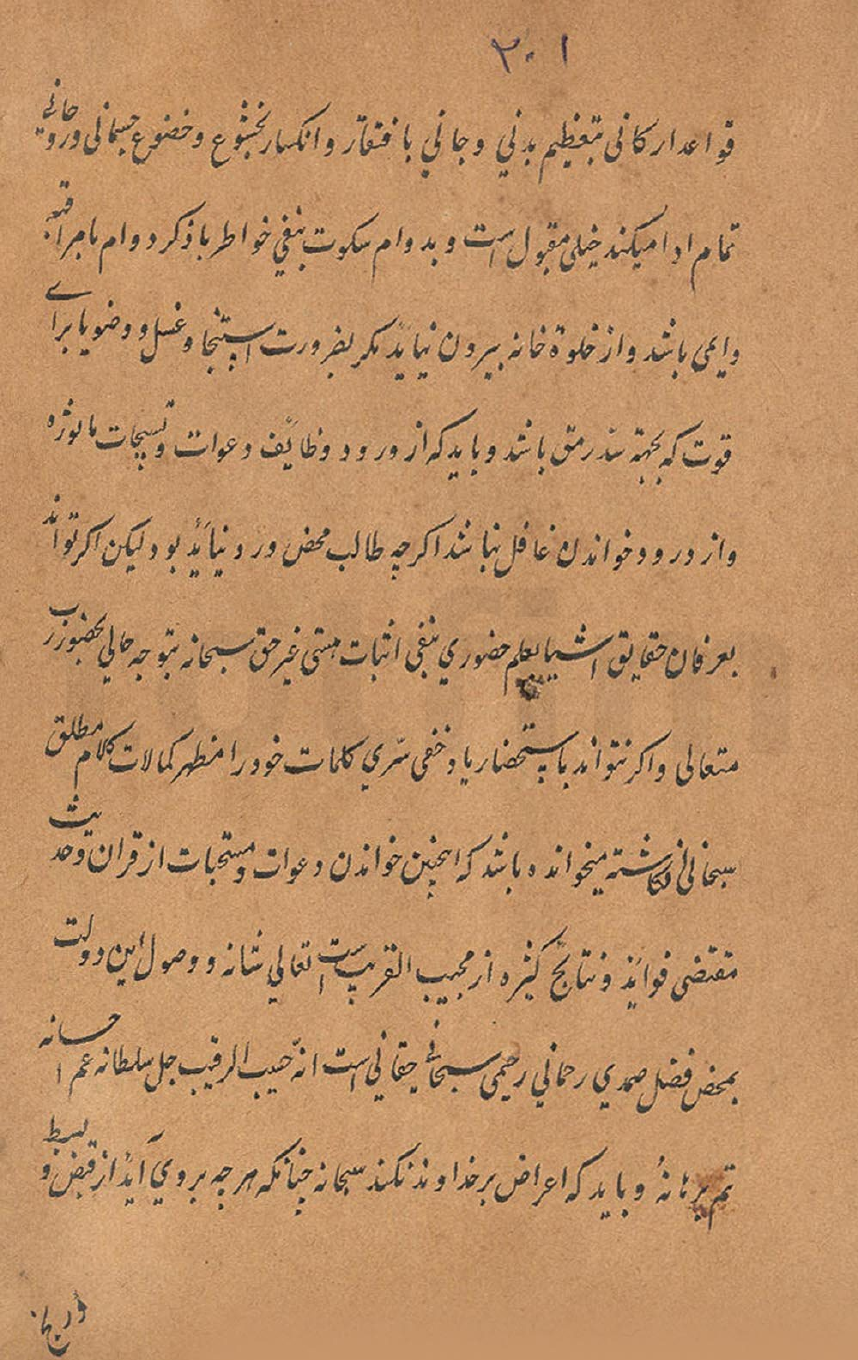 ۲۰۱
قواعد ارکانی بتعظیم بدنی وجانی بافتقار وانکسار بخشوع وخضوع جسمانی وروحانی
تمام ادا میکند خیلی مقبول است و بدوام سکوت بنفی خواطر با ذکر دوام با مراقبه
دایمی باشد واز خلوة خانه بیرون نیاید مکر بضرورت استنجا وغسل ووضو یا برای
قوت که بجهة سد رمق باشد وباید که از ورود وظائف دعوات وتسبیحات ماثوره
واز درود خواندن غافل نباشد اکرچه طالب محض ورد نباید بود لیکن اکر تواند
بعرفان حقایق اشیا بعلم حضوري بنفی اثبات هستی غیر حق سبحانه بتوجه حالي بحضور رب
متعالی واکر نتواند باستحضار یاد خفی سرّي کلمات خود را مظهر کمالات کلام مطلق
سبحانی داشته میخوانده باشد که اینچنین خواندن دعوات ومستحبات از قران وحدیث
مقتضی فواید ونتایج کثیره از مجیب القریب است تعالي شانه ووصول این دولت
بمحض فضل صمدي رحماني رحیمی سبحانی حقاني است انه حسیب الرقیب جل سلطانه عم احسانه
تم برهانهُ وباید که اعراض بر خداوند نکند سبحانه چنانکه هرچه بروي آید از قبض وبسط